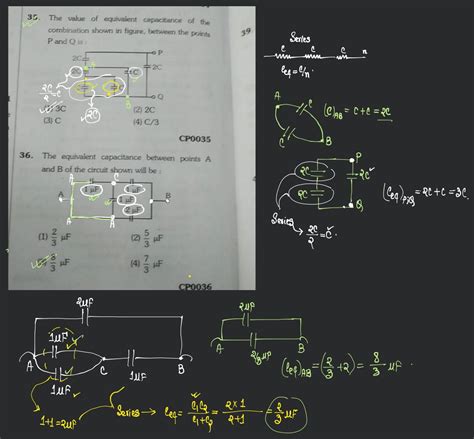 35. The value of equivalent capacitance of the
combination shown in figure, between the points
P and Q is :
2C
P
2C
C
Q
B
(1) 3C
(2) 2C
(3) C
(4) C/3
2C
CP0035
36. The equivalent capacitance between points A
and B of the circuit shown will be :
A
C
1 μF
1 μF
1 μF
2 μF
B
A
C
(1) 2/3 μF
(2) 5/3 μF
(3) 8/3 μF
(4) 7/3 μF
CP0036
39
Series
C C C n
Ceq = C/n
A
C
C
B
(C)AB = C + C = 2C
P
2C
2C
2C
Q
(Ceq)P&Q = 2C + C = 3C.
Series
→ 2C/2 = C
2μF
1μF
A
C
1μF
1μF
B
1+1=2μF
Series → Ceq = C1C2/C1+C2 = 2×1/2+1 = 2/3 μF
2μF
A
B
2/3 μF
(Ceq)AB = (2/3 + 2) = 8/3 μF.